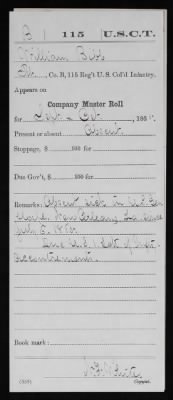 B | 115 | U.S.C.T.
William Bibb
Pvt., Co. B, 115 Reg't U. S. Col'd Infantry.
Appears on
Company Muster Roll
for Sept & Oct, 1865.
Present or absent Absent
Stoppage, $ 100 for
Due Gov't, $ 100 for
Remarks: Absent sick in U.S. Gen
Hosp. New Orleans, La. since
July 5, 1865.
Due U.S. 1 set of Inft.
accoutrements.
Book mark:
(358) Copyist.